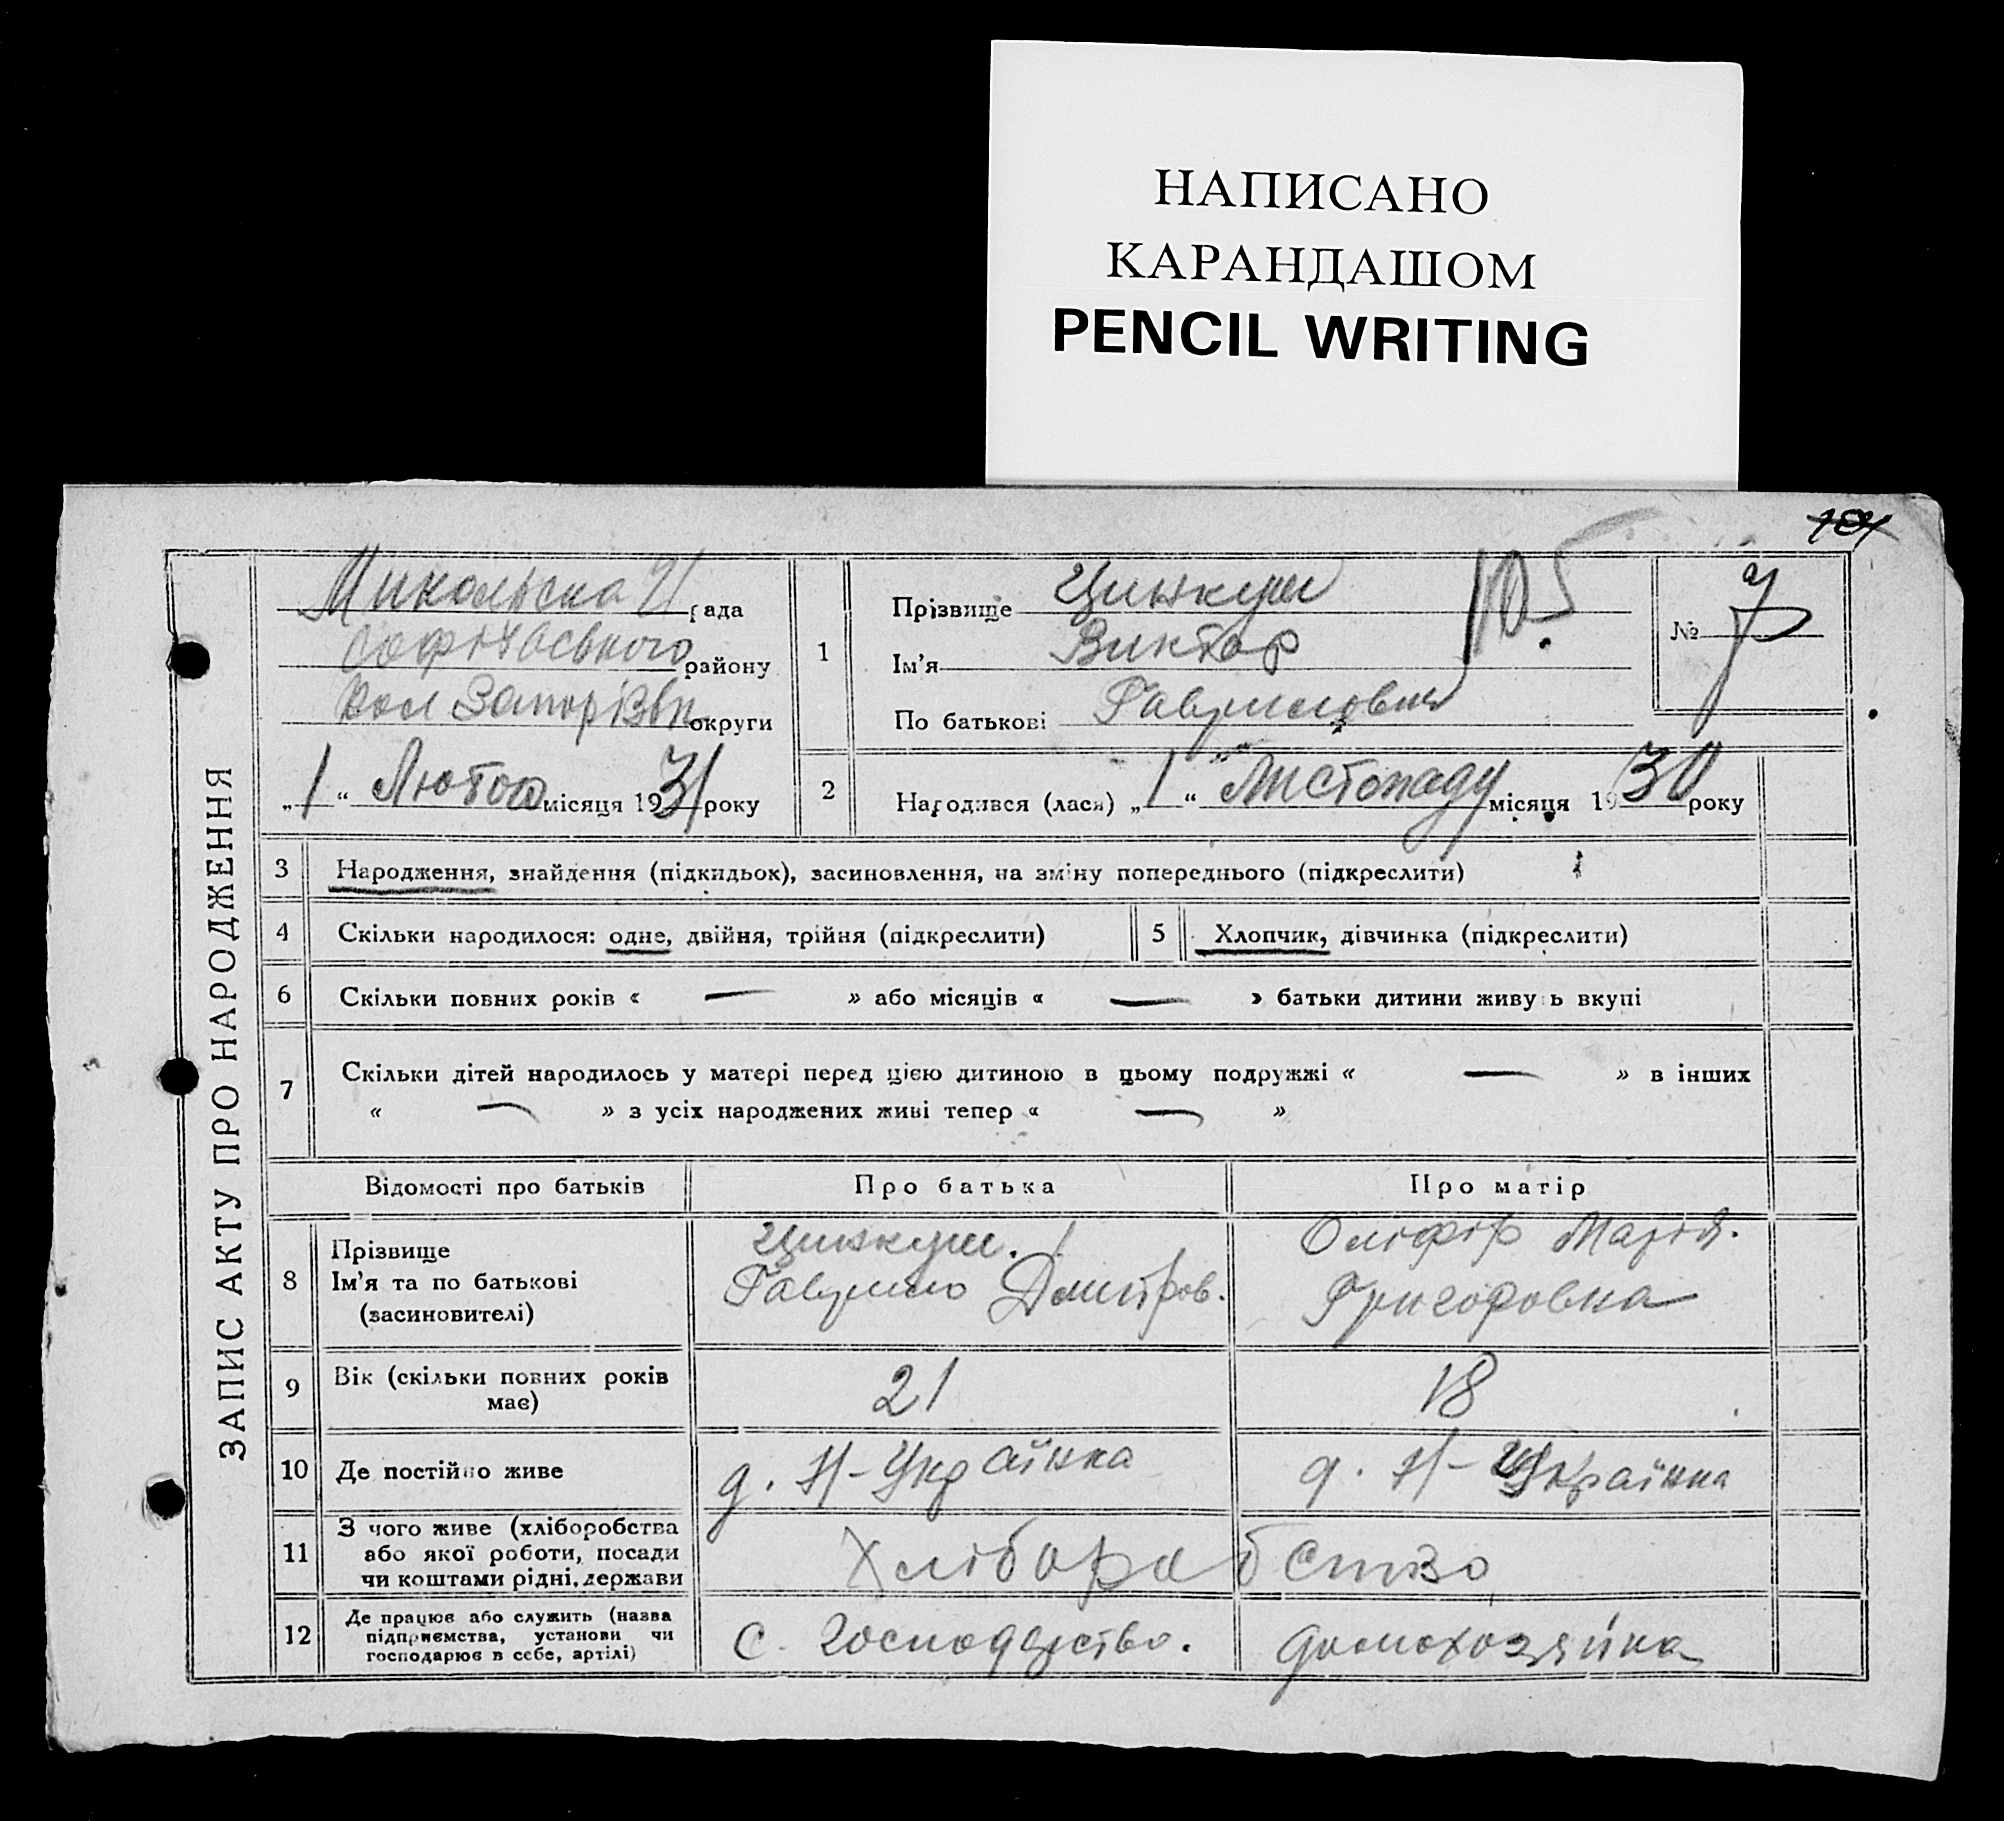 НАПИСАНО
КАРАНДАШОМ
PENCIL WRITING
ЗАПИС АКТУ ПРО НАРОДЖЕННЯ
Микольска рада
Софіївського району
округи
„1“ Лютого місяця 1931 року
1
Прізвище Цинкуш
Ім'я Виктор
По батькові Гаврилович
105
№ 7
2
Народився (лася) „1“ Листопаду місяця 1930 року
3 Народження, знайдення (підкидьок), засиновлення, на зміну попереднього (підкреслити)
4 Скільки народилося: одне, двійня, трійня (підкреслити) 5 Хлопчик, дівчинка (підкреслити)
6 Скільки повних років « — » або місяців « — » батьки дитини живуть вкупі
7 Скільки дітей народилось у матері перед цією дитиною в цьому подружжі « — » в інших
« — » з усіх народжених живі тепер « — »
Відомості про батьків Про батька Про матір
8 Прізвище
Ім'я та по батькові
(засиновителі)
Цинкуш.
Гаврило Дмитров.
Оліфір Марія.
Григоровна
9 Вік (скільки повних років
має)
21 18
10 Де постійно живе д. Н-Українка д. Н-Українка
11 З чого живе (хліборобства
або якої роботи, посади
чи коштами рідні, держави
Хліборобство
12 Де працює або служить (назва
підприємства, установи чи
господарює в себе, артілі)
С. господарство. домохозяйка